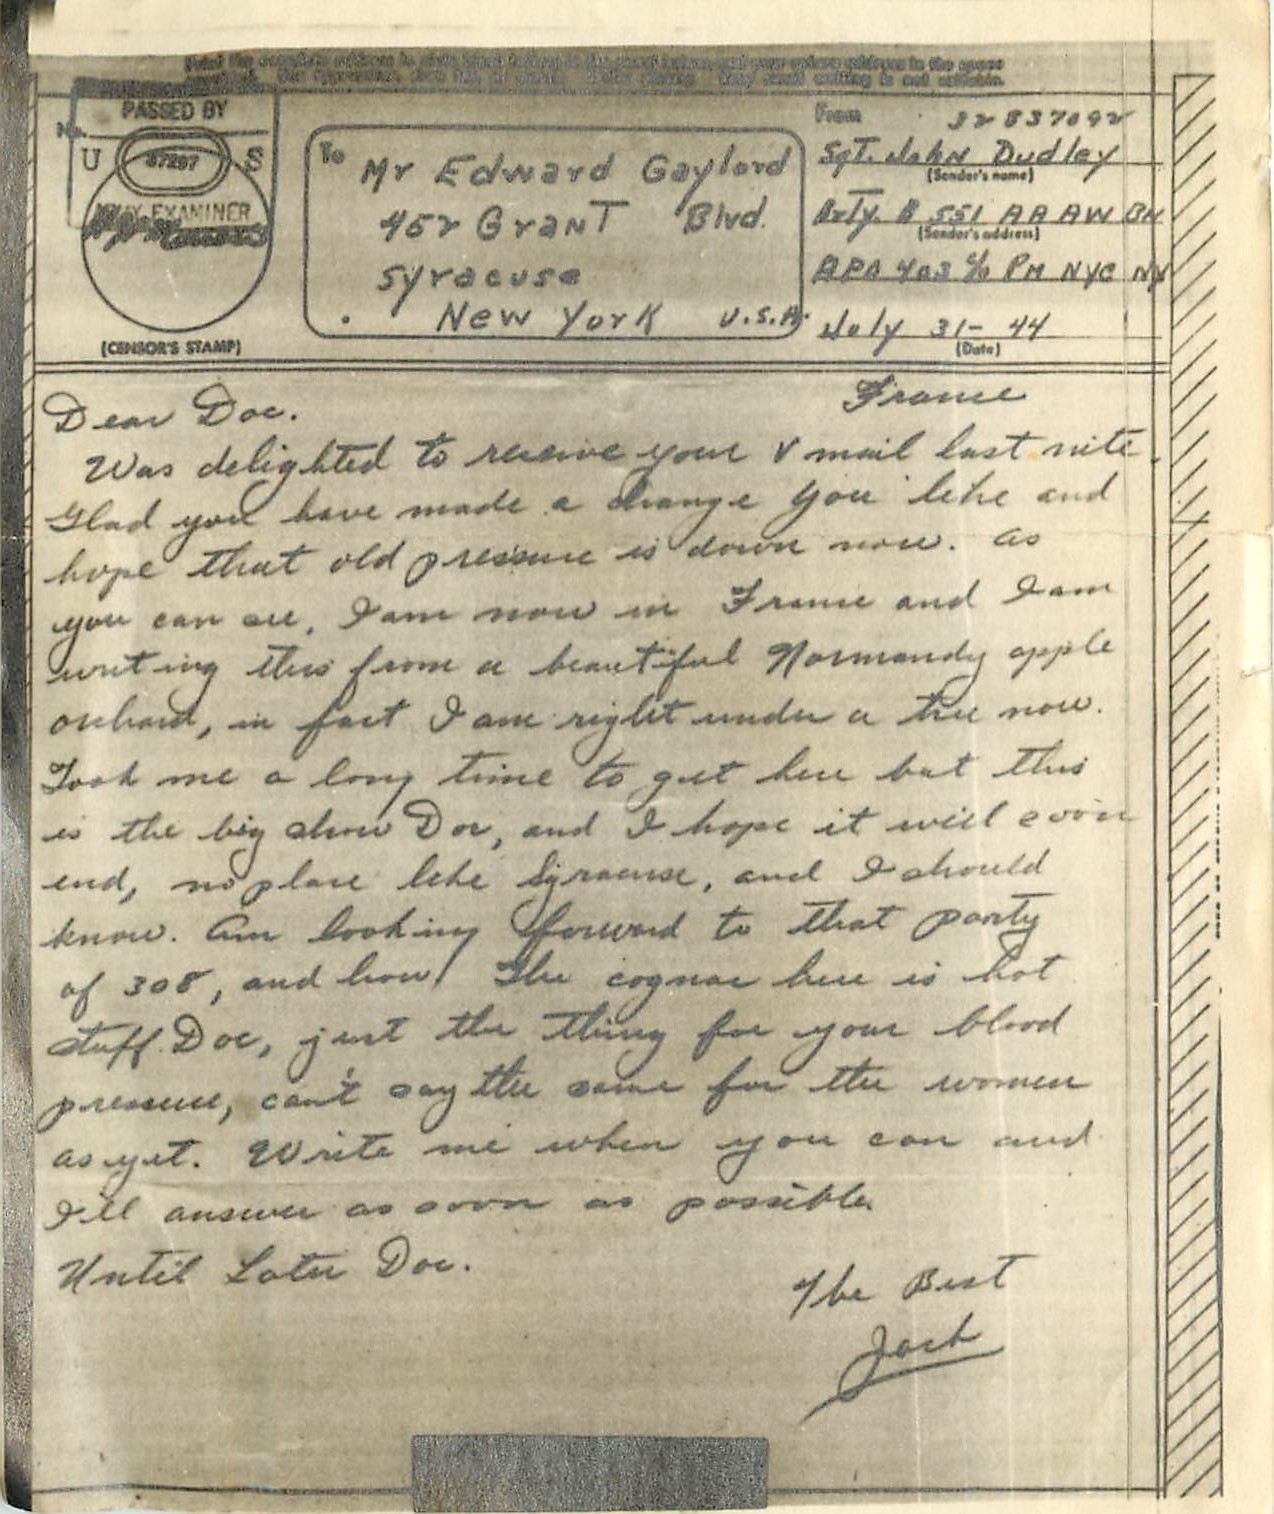 Print the complete address in plain block letters in the panel below, and your return address in the space
provided. Use typewriter, dark ink, or pencil. Write plainly. Very small writing is not suitable.
No.
PASSED BY
U 37297 S
ARMY EXAMINER
(CENSOR'S STAMP)
To
Mr Edward Gaylord
452 Grant Blvd.
Syracuse
New York U.S.A.
From 32837092
Sgt. John Dudley
(Sender's name)
Btty. B 551 AA AW BN
(Sender's address)
APO 403 c/o PM NYC NY
July 31- 44
(Date)
France
Dear Doc.
Was delighted to receive your V mail last nite.
Glad you have made a change you like and
hope that old pressure is down now. As
you can see, I am now in France and I am
writing this from a beautiful Normandy apple
orchard, in fact I am right under a tree now.
Took me a long time to get here but this
is the big show Doc, and I hope it will soon
end, no place like Syracuse, and I should
know. Am looking forward to that party
of 308, and how! The cognac here is hot
stuff Doc, just the thing for your blood
pressure, can't say the same for the women
as yet. Write me when you can and
I'll answer as soon as possible.
Until Later Doc.
The Best
Jack